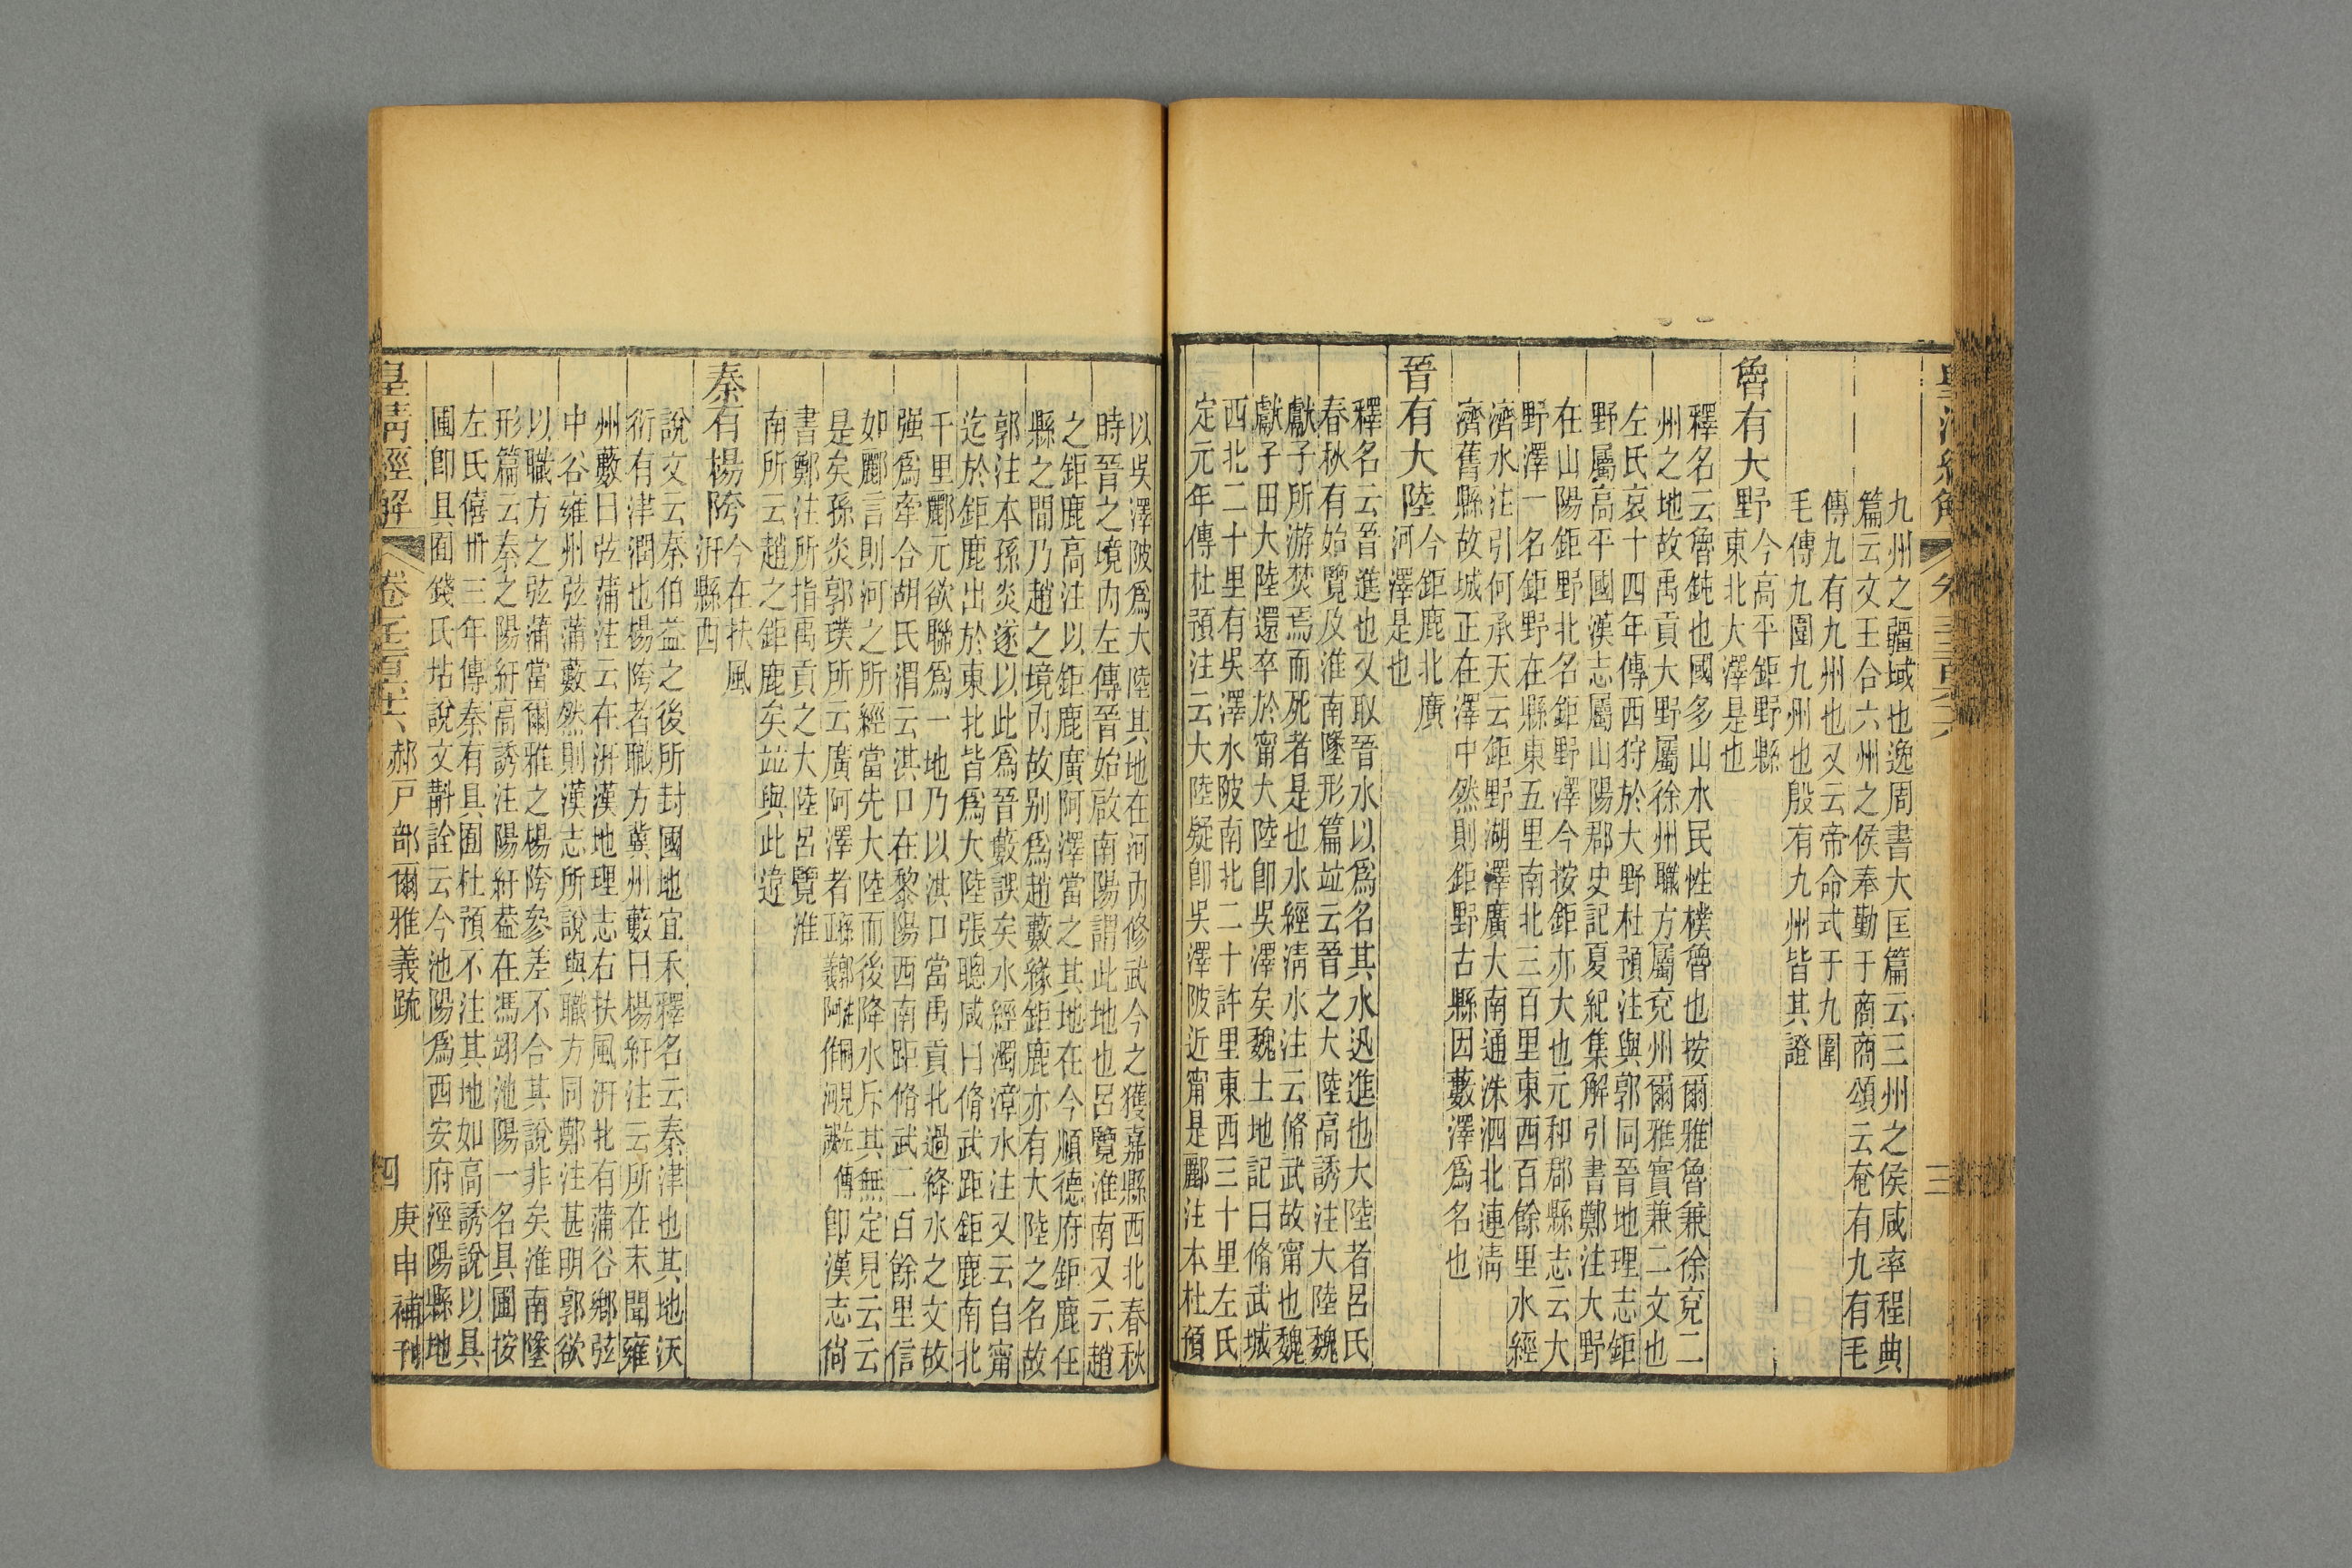 九州之疆域也逸周書大匡篇云三州之侯咸率程典
篇云文王合六州之侯奉勤于商商頌云奄有九有毛
傳九有九州也又云帝命式于九圍
毛傳九圍九州也殷有九州皆其證
魯有大野今高平鉅野縣
東北大澤是也
釋名云魯鈍也國多山水民性樸魯也按爾雅魯兼徐兗二
州之地故禹貢大野屬徐州職方屬兗州爾雅實兼二文也
左氏哀十四年傳西狩於大野杜預注與郭同晉地理志鉅
野屬高平國漢志屬山陽郡史記夏紀集解引書鄭注大野
在山陽鉅野北名鉅野澤今按鉅亦大也元和郡縣志云大
野澤一名鉅野在縣東五里南北三百里東西百餘里水經
濟水注引何承天云鉅野湖澤廣大南通洙泗北連清
濟舊縣故城正在澤中然則鉅野古縣因藪澤爲名也
晉有大陸今鉅鹿北廣
河澤是也
釋名云晉進也又取晉水以爲名其水迅進也大陸者呂氏
春秋有始覽及淮南墬形篇竝云晉之大陸高誘注大陸魏
獻子所游焚焉而死者是也水經清水注云脩武故甯也魏
獻子田大陸還卒於甯大陸卽吳澤矣魏土地記曰脩武城
西北二十里有吳澤水陂南北二十許里東西三十里左氏
定元年傳杜預注云大陸疑卽吳澤陂近甯是酈注本杜預
以吳澤陂爲大陸其地在河內修武今之獲嘉縣西北春秋
時晉之境內左傳晉始啟南陽謂此地也呂覽淮南又云趙
之鉅鹿高注以鉅鹿廣阿澤當之其地在今順德府鉅鹿任
縣之間乃趙之境內故别爲趙藪緣鉅鹿亦有大陸之名故
郭注本孫炎遂以此爲晉藪誤矣水經濁漳水注又云自甯
迄於鉅鹿出於東北皆爲大陸張聰咸曰脩武距鉅鹿南北
千里酈元欲聯爲一地乃以淇口當禹貢北過絳水之文故
强爲牽合胡氏渭云淇口在黎陽西南距脩武二百餘里信
如酈言則河之所經當先大陸而後降水斥其無定見云云
是矣孫炎郭璞所云廣阿澤者傳卽漢志尙
書鄭注所指禹貢之大陸呂覽淮
南所云趙之鉅鹿矣竝與此違
秦有楊陓今在扶風
汧縣西
說文云秦伯益之後所封國地宜禾釋名云秦津也其地沃
衍有津潤也楊陓者職方冀州藪曰楊紆注云所在未聞雍
州藪曰弦蒲注云在汧漢地理志右扶風汧北有蒲谷鄉弦
中谷雍州弦蒲藪然則漢志所說與職方同鄭注甚明郭欲
以職方之弦蒲當爾雅之楊陓參差不合其說非矣淮南墬
形篇云秦之陽紆高誘注陽紆葢在馮翊池陽一名具圃按
左氏僖卅三年傳秦有具囿杜預不注其地如高誘說以具
圃卽具囿錢氏坫說文斠詮云今池陽爲西安府涇陽縣地
皇清經解 卷 郝戶部爾雅義疏 四 庚申補刊